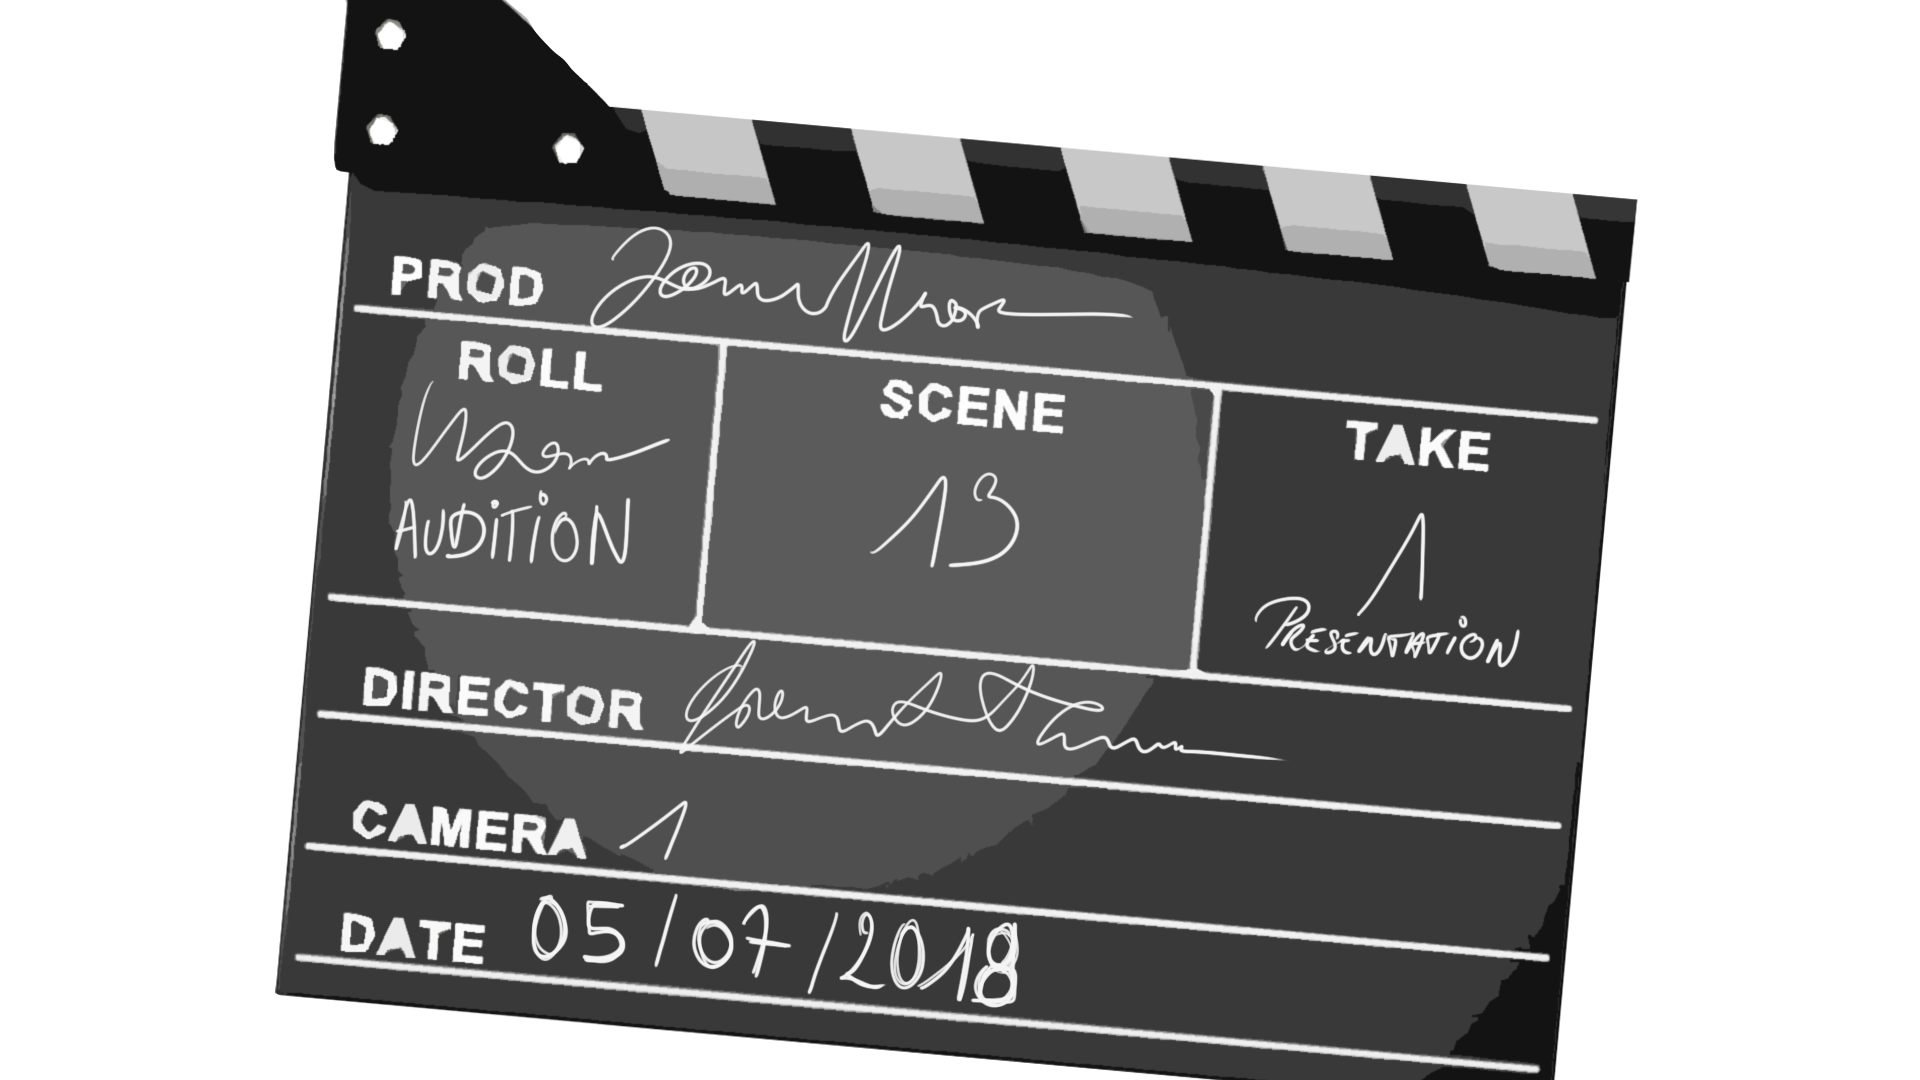 PROD
ROLL
AUDITION
SCENE
13
TAKE
1
PRESENTATION
DIRECTOR
CAMERA 1
DATE 05/07/2018